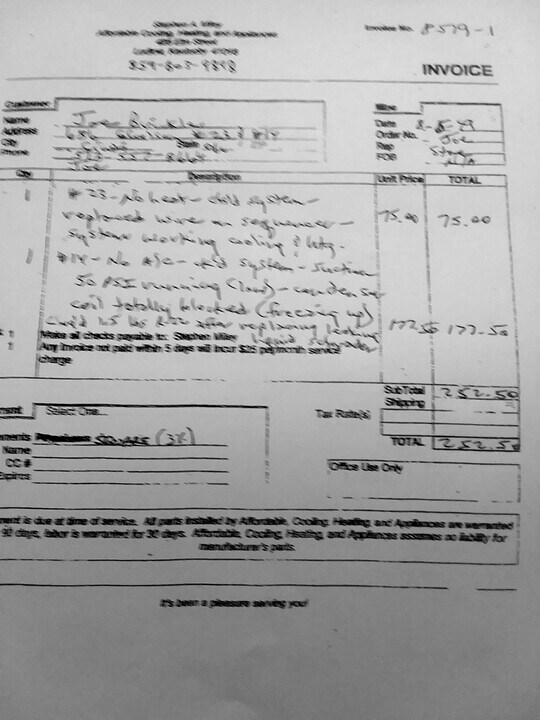 Stephen A. Wiley
Affordable Cooling, Heating, and Appliances
Street
Ludlow, Kentucky 41016
859-803-9898
Invoice No. 8579-1
INVOICE
Customer
Name Joe
Address # 23 & #14
City State
Phone
Joe
Misc
Date
Order No. Joe
Rep Steve
FOB N/A
Qty Description Unit Price TOTAL
1 # 23 - No heat - chkd system -
replaced wire on sequencer -
system working cooling & htg. 75.00 75.00
1 #14 - No A/C - chkd system - suction
50 PSI running (low) - condenser
coil totally blocked (freezing up)
R22 after replacing leaking 177.50 177.50
liquid
1 Make all checks payable to: Stephen Wiley
1 Any invoice not paid within 5 days will incur $25 per/month service
charge
SubTotal 252.50
Shipping
Tax Rate(s)
TOTAL 252.50
ment Select One...
ments (3%)
Name
CC #
Expires
Office Use Only
ment is due at time of service. All parts installed by Affordable, Cooling, Heating, and Appliances are warranted
90 days, labor is warranted for 30 days. Affordable, Cooling, Heating, and Appliances assumes no liability for
manufacturer's parts.
It's been a pleasure serving you!